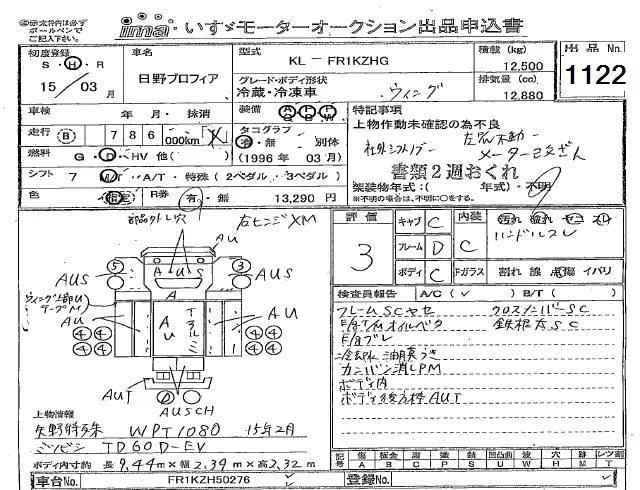 ※示太枠内は必ず
ボールペンで
ご記入下さい。
ima いすゞモーターオークション出品申込書
初度登録 S・H・R 15 / 03 月
車名 日野プロフィア
型式 KL - FR1KZHG
積載 (kg) 12,500
グレード・ボディ形状 冷蔵・冷凍車 ウィング
排気量 (cc) 12,880
出品No
1122
車検 年 月・抹消
装備
特記事項
走行 B 786 000km
タコグラフ 有・無 別体
(1996年 03月)
上物作動未確認の為不良
社外シフトノブー
メーター改ざん
書類2週おくれ
燃料 G・D・HV 他( )
シフト 7 M/T・A/T・特殊(2ペダル・3ペダル)
架装物年式:( 年式)・不明
※不明の場合は、不明に○をする。
色 指定 R券 有・無 13,290円
部品外し穴
左ヒンジXM
AU
AUS
ウィング上部U
テープM
AU
アルミ
AUT
AUSCH
評価 3
キャブ C
フレーム D
ボディ C
内装 C
汚れ 破れ ヤニ スレ
ハンドルスレ
Fガラス 割れ 線 点傷 イバリ
検査員報告 A/C(✓) B/T( )
フレームSCヤセ クロスメンバーSC
E/g T/M オイルベタ 鉄板方SC
E/gブレ
冷却水油膜うき
カンバン消しPM
ボディ内
ボディ後方枠AUT
上物情報
矢野特殊 WPT1080 15年2月
ミツビシ TD60D-EV
ボディ内寸約 長 9.44m×幅 2.39m×高 2.32m
記号 傷 A 板金 B 腐食 C 塗装 P 錆 S 凹凸曲 U ボディ W 穴 H 跡 M レンズ割 T
車台No. FR1KZH50276
登録No.